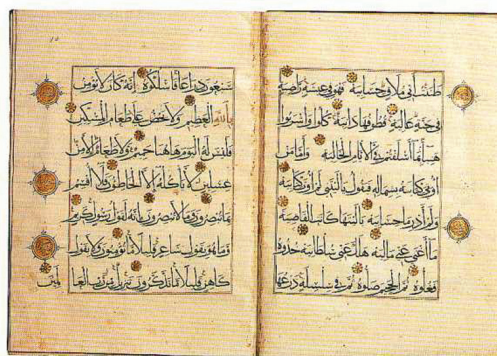 ظننت أني ملاق حسابيه فهو في عيشة راضية
في جنة عالية قطوفها دانية كلوا واشربوا
هنيئا بما أسلفتم في الأيام الخالية وأما من
أوتي كتابه بشماله فيقول يا ليتني لم أوت كتابيه
ولم أدر ما حسابيه يا ليتها كانت القاضية
ما أغنى عني ماليه هلك عني سلطانيه خذوه
فغلوه ثم الجحيم صلوه ثم في سلسلة ذرعها
سبعون ذراعا فاسلكوه إنه كان لا يؤمن
بالله العظيم ولا يحض على طعام المسكين
فليس له اليوم هاهنا حميم ولا طعام إلا من
غسلين لا يأكله إلا الخاطئون فلا أقسم
بما تبصرون وما لا تبصرون إنه لقول رسول كريم
وما هو بقول شاعر قليلا ما تؤمنون ولا بقول
كاهن قليلا ما تذكرون تنزيل من رب العا
لمين